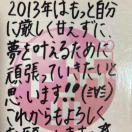 2013年はもっと自分
に厳しく甘えずに、
夢を叶えるために
頑張っていきたいと
思います!!(ミヤジ)
これからもよろしく